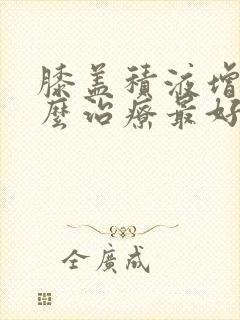 膝盖積液增
麼治療最好
全廣成